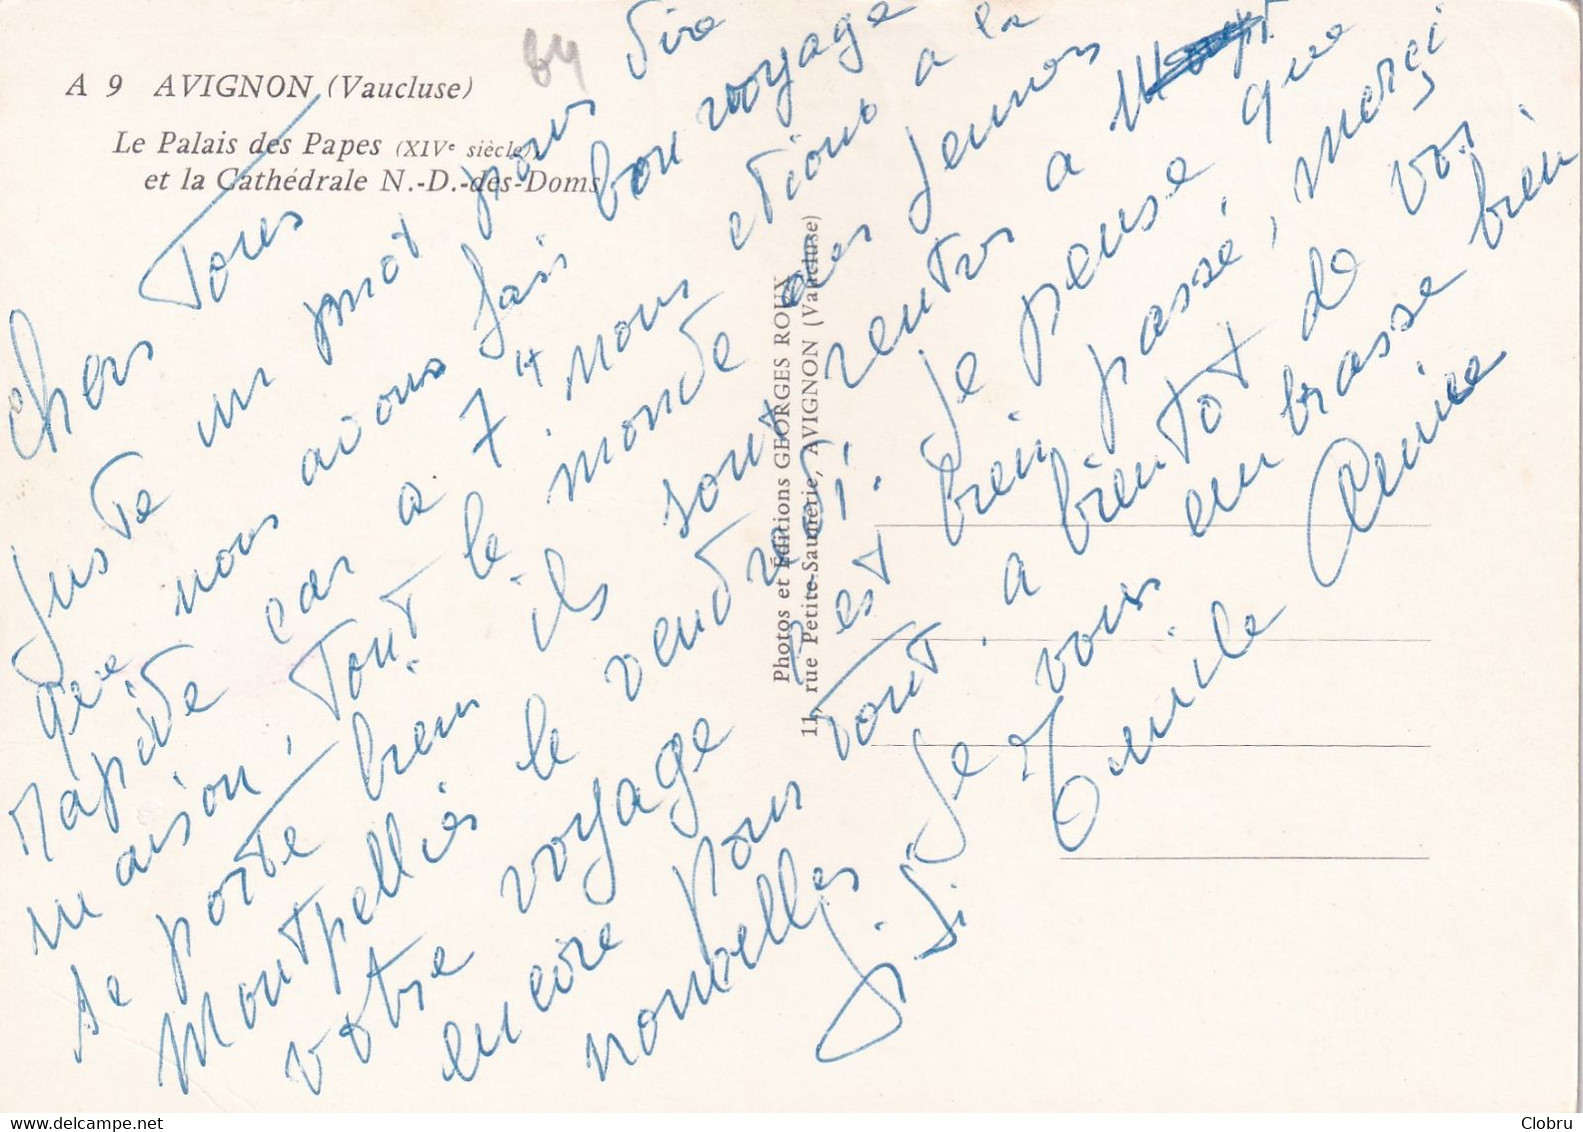 A 9 AVIGNON (Vaucluse)
84
Le Palais des Papes (XIVe siècle)
et la Cathédrale N.-D.-des-Doms
Photos et Éditions GEORGES ROUX
11, rue Petite-Saunerie, AVIGNON (Vaucluse)
Chers Tous
Juste un mot pour dire
que nous avons fais bon voyage
rapide car a 7 H nous etions a la
maison, Tout le monde
se porte bien ils sont rentrs a
Montpellies le vendredi. Je pense que
votre voyage s'est bien passé, merçi
encore pour tout. a bientot de vos
nouvelles Je vous embrasse bien
Famile
Clobru